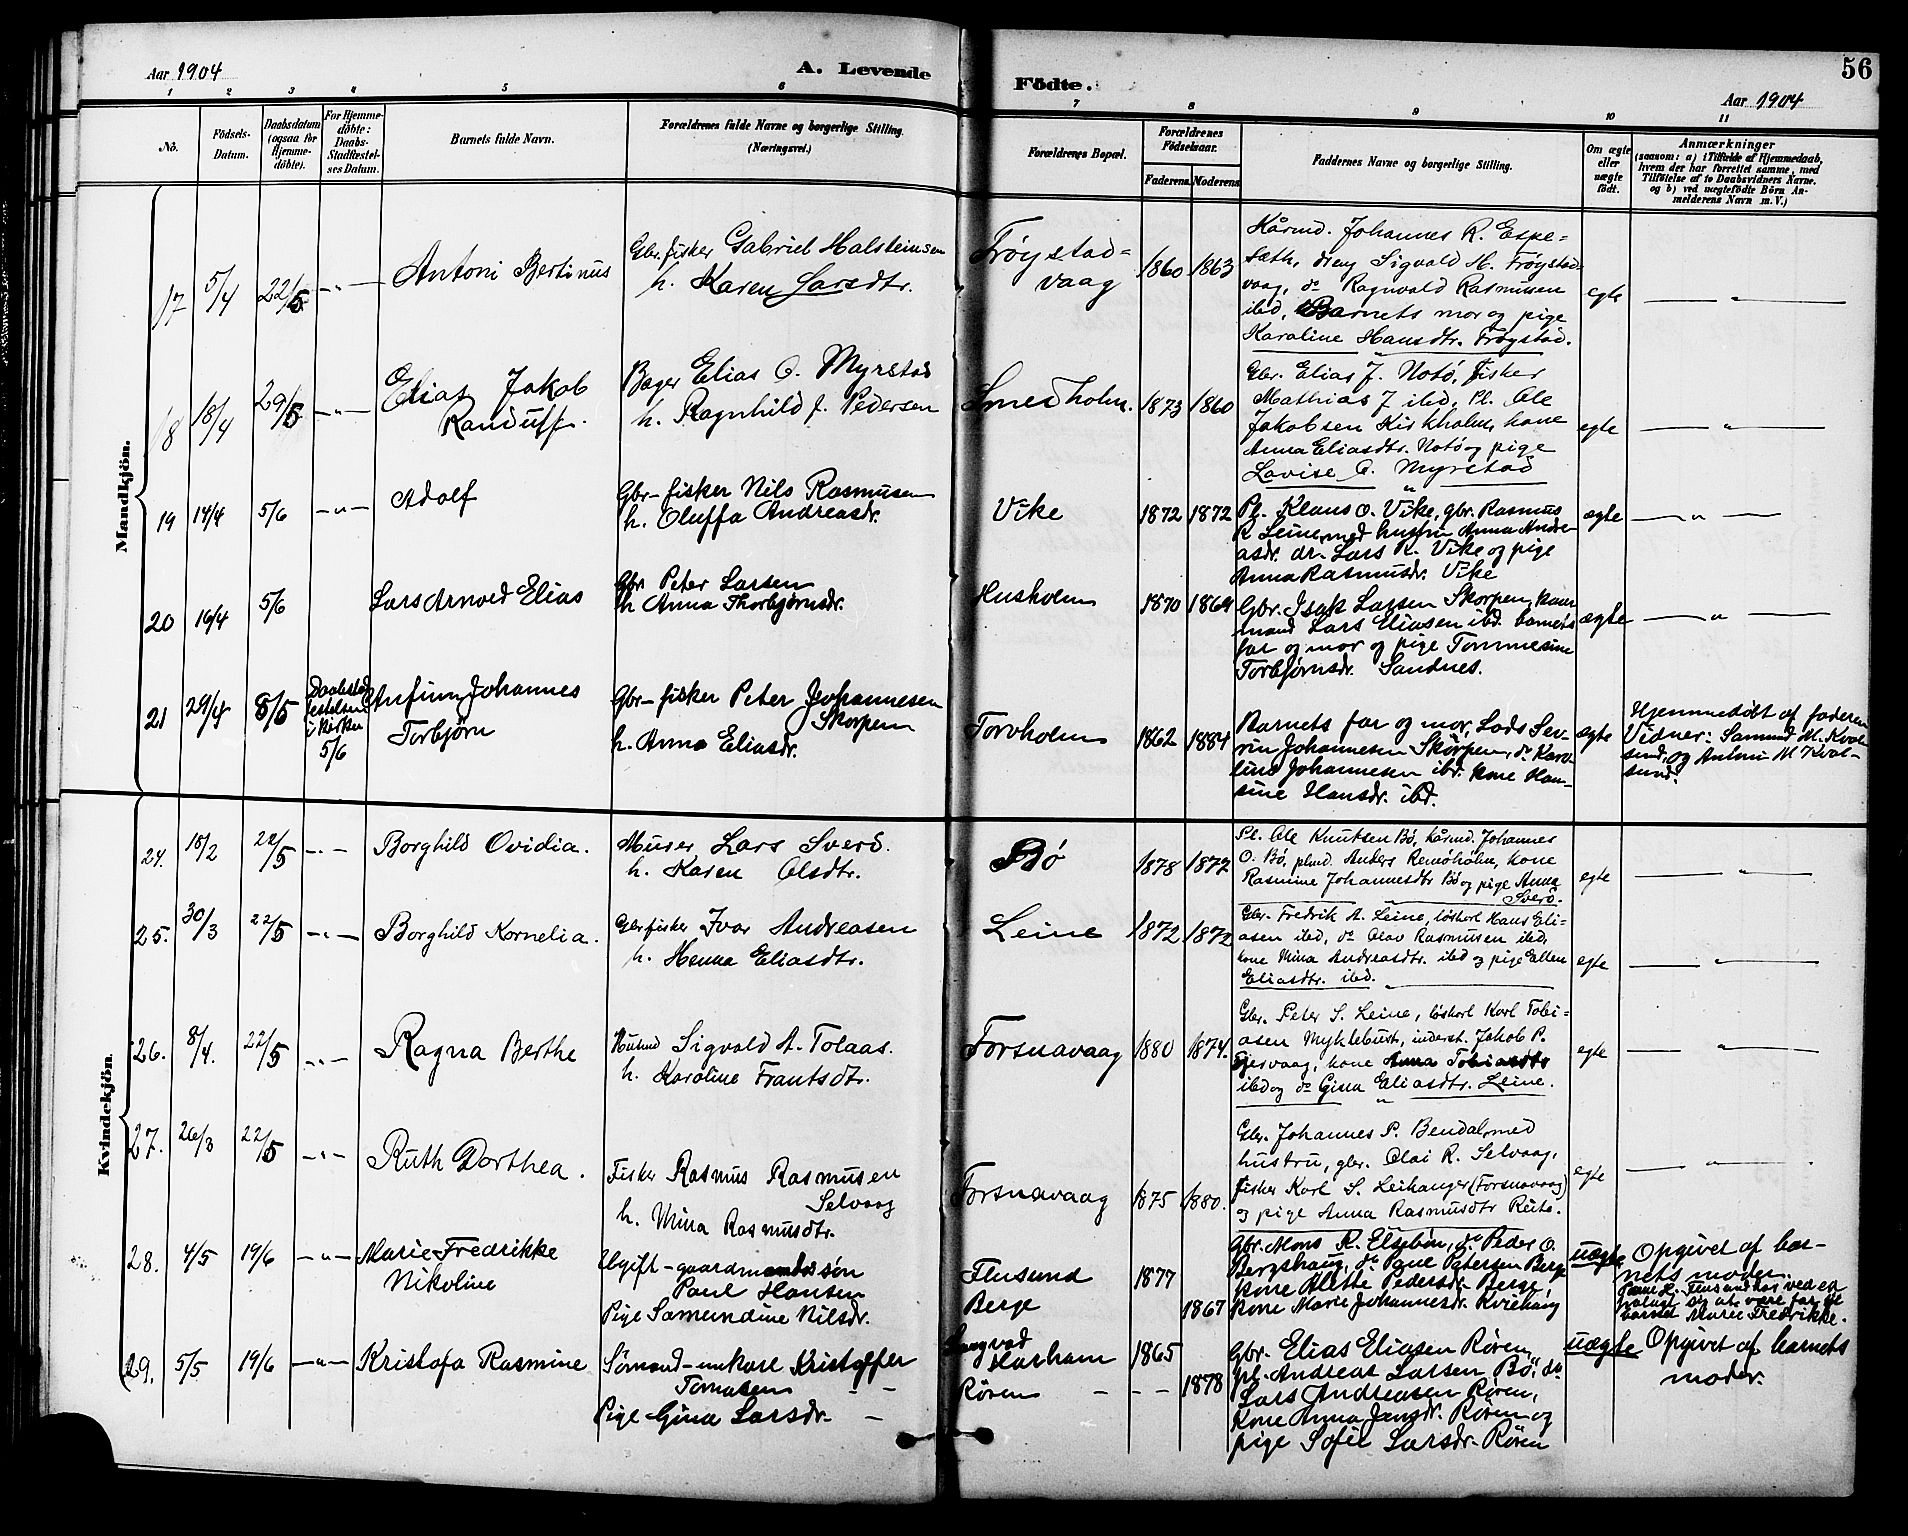 Aar 1904
A. Levende
Födte.
56
Aar 1904
1 2 3 4 5 6 7 8 9 10 11
No.
Födsels-
Datum.
Daabsdatum
(ogsaa for
Hjemme-
döbte).
For Hjemme-
döbte:
Daabs-
Stadfæstel-
ses Datum.
Barnets fulde Navn.
Forældrenes fulde Navne og borgerlige Stilling.
(Næringsvei.)
Forældrenes Bopæl.
Forældrenes
Födselsaar.
Faderens. Moderens.
Faddernes Navne og borgerlige Stilling.
Om ægte
eller
uægte
födt.
Anmærkninger
(saasom: a) i Tilfælde af Hjemmedaab,
hvem der har forrettet samme, med
Tilføielse af to Daabsvidners Navne.
og b) ved uægtefödte Börn An-
melderens Navn m. V.)
Mandkjön.
17 5/4 22/5 - " -
Antoni Bertinus
Gbr. fisker Gabriel Halsteinsen
h. Karen Larsdtr.
Frøystad-
vaag
1860 1863
Kårmd. Johannes R. Espe-
sæth, dreng Sigvald H. Frøystad-
vaag, do Ragnvald Rasmussen
ibid, Barnets mor og pige
Karoline Hansdtr. Frøystad.
egte
— " —
18 18/4 29/5 - " -
Elias Jakob
Randulf.
Bager Elias O. Myrstad
h. Ragnhild J. Pedersen
Smedholm.
1873 1860
Gbr. Elias J. Notø, fisker
Mathias J ibid, Pl. Ole
Jakobsen Kirkholm, kone
Anna Eliasdtr. Notø og pige
Lovise O. Myrstad
egte
— " —
19 14/4 5/6 - " -
Adolf
Gbr-fisker Nils Rasmusen
h. Oluffa Andreasdr.
Vike
1872 1872
Pl. Klaus O. Vike, gbr. Rasmus
R Leine med hustru Anna Andre-
asdr. dr. Lars R. Vike og pige
Anna Rasmusdr. Vike
ægte
— " —
20 16/4 5/6
Lars Arnold Elias
Gbr Peter Larsen
h Anna Thorbjørnsdr.
Husholm
1870 1869
Gbr. Isak Larsen Skorpen, kaar-
mand Lars Eliasen ibd. barnets
far og mor og pige Tommesine
Torbjørnsdr. Sandnes.
ægte
— " —
21 29/4 8/5
Daabstad-
festelsen
i kirken
5/6
Anfinn Johannes
Torbjørn
Gbr-fisker Peter Johannesen
Skorpen
h. Anna Eliasdr.
Torvholm
1862 1884
Barnets far og mor, Lods Sev-
rin Johannesen Skorpen, do Karo-
line Johannesen ibd. kone Han-
sine Hansdr. ibd.
ægte
Hjemmedøbt af faderen
Vidner: Samund M. Kval-
sund, og Antoni M Kval-
sund.
Kvindekjön.
24. 15/2 22/5 - " -
Borghild Ovidia.
Murer Lars Sverd.
h. Karen Olsdtr.
Bø
1878 1872
Pl. Ole Knutsen Bø, kårmd. Johannes
O. Bø, plmd. Anders Remøholm, kone
Rasmine Johannesdtr Bø og pige Anna
Sverd.
egte
— " —
25. 30/3 22/5 - " -
Borghild Kornelia.
Gbr fisker Ivar Andreasen
h. Henna Eliasdtr.
Leine
1872 1872
Gbr. Fredrik A. Leine, løskarl Hans Eli-
asen ibid, do Olav Rasmusen ibid,
kone Mina Andreasdtr. ibid og pige Ellen
Eliasdtr. ibid.
egte
— " —
26. 8/4. 22/5 - " -
Ragna Berthe
Husmd Sigvald A. Tolaas.
h. Karoline Frantsdtr.
Fosnavaag
1880 1874.
Gbr. Peter S. Leine, løskarl Karl Tobi-
asen Myklebust, inderst. Jakob P.
Igesvaag, kone Anna Tobiasdtr
ibid og do Gina Eliasdtr. Leine.
egte
— " —
27. 26/3 22/5 - " -
Ruth Dorthea.
Fisker Rasmus Rasmusen
Selvaag
h. Mina Rasmusdtr.
Fosnavaag
1875 1880.
Gbr. Johannes P. Bendal, med
hustru, gbr. Olai R. Selvaag,
fisker Karl S. Leihanger (Fosnavaag)
og pige Anna Rasmusdtr Reite.
egte
— " —
28. 4/5 19/6 - " -
Marie Fredrikke
Nikoline
Ugift-gaardmandssøn
Paul Hansen
Pige Samundine Nilsdr.
Flusund
Berge
1877
1867
Gbr. Mons R. Elsebøn, do Peder O.
Bergshaug, do Pane Petersen Berge
kone Alette Pedersdr Berge
kone Marie Johannesdr. Kvihaug
uægte
Opgivet af bar-
nets moder.
H. Flusund har vedkj
sig at være far til
barnet Marie Fredrikke.
29. 5/5 19/6 - " -
Kristofa Rasmine
Sømand-unkarl Kristoffer
Tomasen - -
Pige Gina Larsdr. -
Langvad
Harham
Røren - - -
1865
1878
Gbr. Elias Eliasen Røren
pl. Andreas Larsen Bø, do
Lars Andreasen Røren,
kone Anna Jensdr. Røren og
pige Sofie Larsdr. Røren
uægte
Opgivet af barnets
moder.